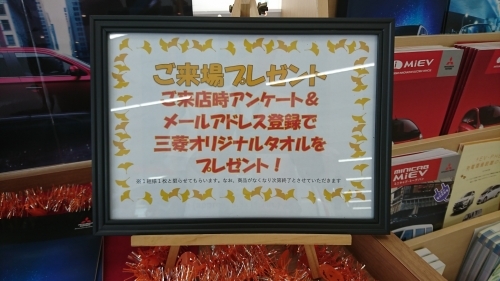 ご来場プレゼント
ご来店時アンケート&
メールアドレス登録で
三菱オリジナルタオルを
プレゼント！
なお、商品がなくなり次第終了とさせていただきます
MiEV
MINICAB
MiEV